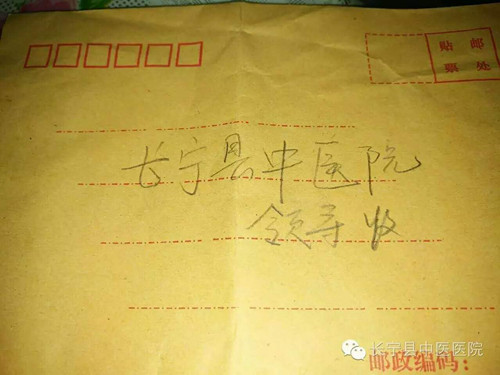 贴 邮
票 处
长宁县中医院
领导收
邮政编码：
长宁县中医医院